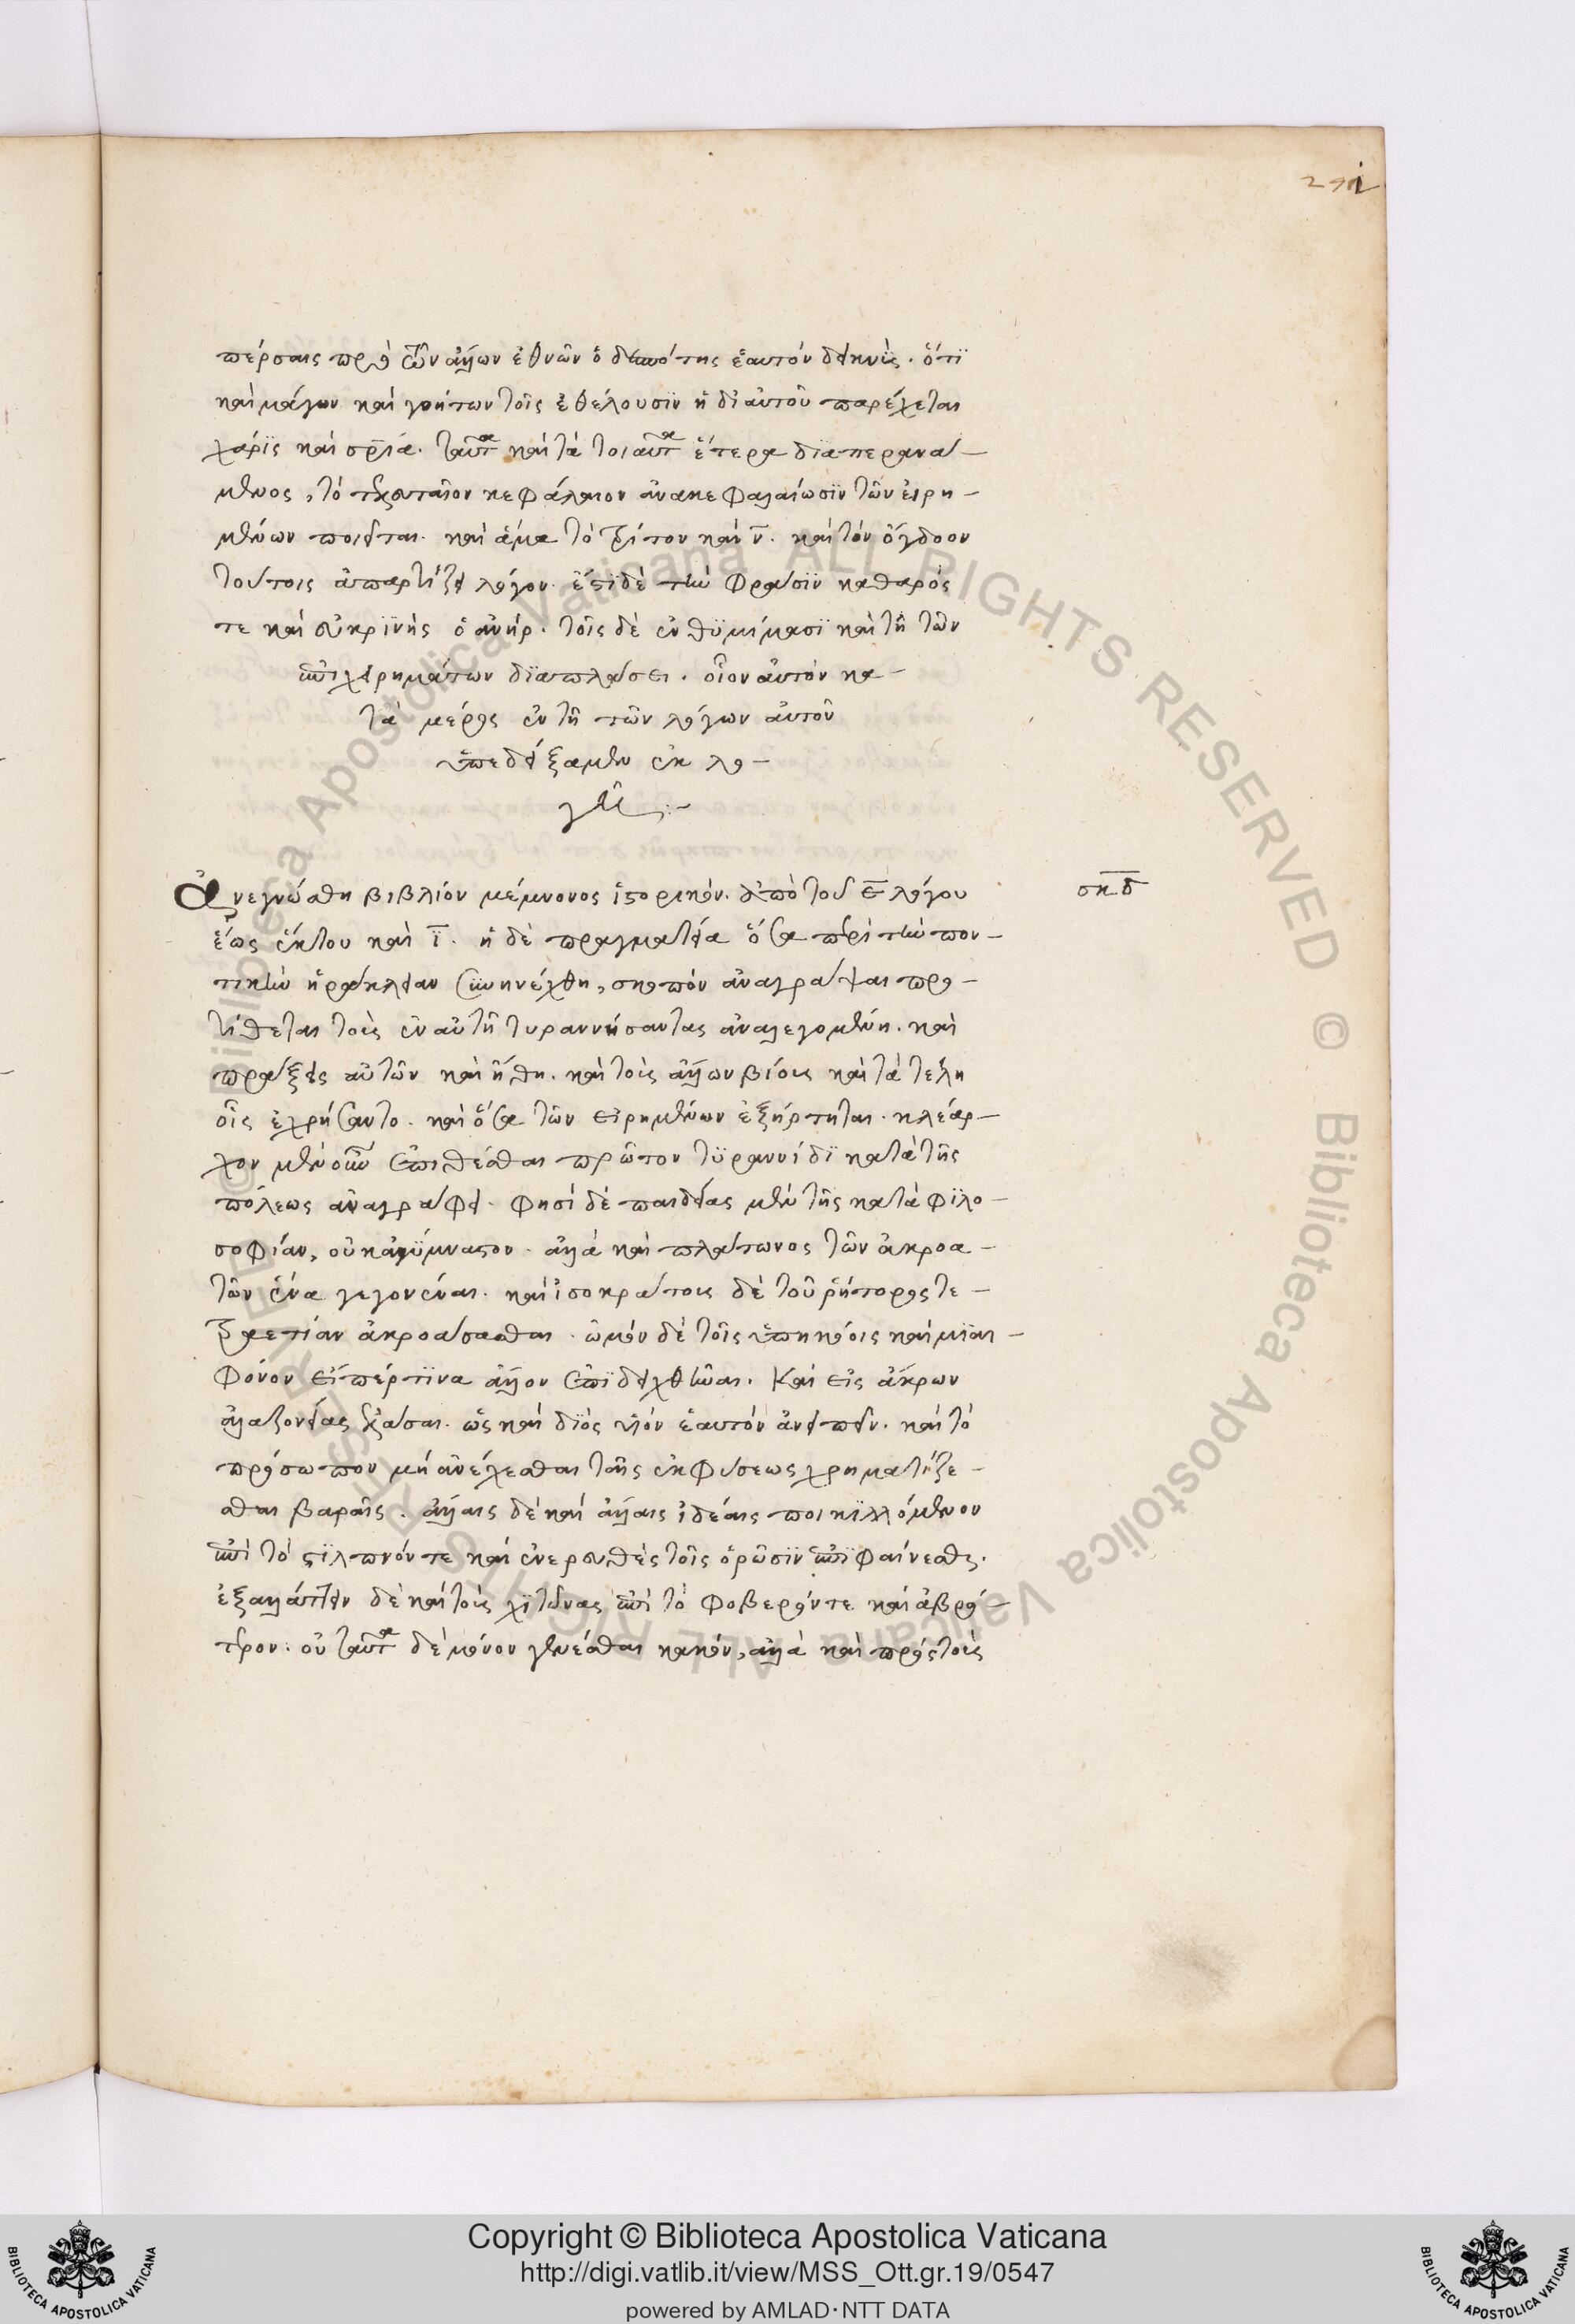 291
πέρσαις πρὸ τῶν ἄλλων ἐθνῶν ὁ δεσπότης ἑαυτὸν δεικνὺς. ὅτϊ
καὶ μάγων καὶ γοήτων τοῖς ἐθέλουσϊν ἡ δἰ αὐτοῦ παρέχεται
χάρϊς καὶ σρ̅ία. ταῦτα καὶ τὰ τοιαῦτα ἕτερα δϊαπερανά-
μενος, τὸ τελευταῖον κεφάλαιον ἀνακεφαλαίωσϊν τῶν εἰρη-
μένων ποιεῖται. καὶ ἅμα τὸ τρίτον καὶ ν̅. καὶ τὸν ὄγδοον
τούτοις ἀπαρτίζει λόγον. ἔστϊ δὲ τὴν φράσϊν καθαρός
τε καὶ εὐκρϊνὴς ὁ ἀνήρ. τοῖς δὲ ἐνθϋμίμασϊ καὶ τῇ τῶν
ἐπιχειρημάτων δϊαπλάσει. οἷον αὐτὸν κα-
τὰ μέρος ἐν τῇ τῶν λόγων αὐτοῦ
ὑπεδείξαμεν ἐκ λο-
γῇ:-
Ἀνεγνώσθη βιβλίον μέμνονος ἱστορικόν. ἀπὸ τοῦ θ̅ λόγου
σκ̅δ̅
ἕως ἕκτου καὶ ϊ̅. ἡ δὲ πραγματεία ὅσα περὶ τὴν πον-
τικὴν ἡράκλειαν συνηνέχθη, σκοπὸν ἀναγράψαι προ-
τίθεται τοὺς ἐν αὐτῇ τυραννήσαντας ἀναλεγομένη. καὶ
πράξεις αὐτῶν καὶ ἤθη. καὶ τοὺς ἄλλων βίους καὶ τὰ τέλη
οἷς ἐχρήσαντο. καὶ ὅσα τῶν εἰρημένων ἐξήρτηται. κλέαρ-
χον μὲν οὖν ἐπιθέσθαι πρῶτον τϋραννίδϊ κατὰ τῆς
πόλεως ἀναγράφει. φησί δὲ παιδείας μὲν τῆς κατὰ φϊλο-
σοφίαν, οὐκ ἀγϋμναστον. ἀλλὰ καὶ πλάτωνος τῶν ἀκροα-
τῶν ἕνα γεγονέναι. καὶ ἰσοκράτους δὲ τοῦ ῥήτορος τε-
τραετίαν ἀκροάσασθαι. ὠμὸν δὲ τοῖς ὑπηκόοις καὶ μϊαι-
φόνον εἴπέρ τϊνα ἄλλον ἐπϊδειχθῆναι. καὶ εἰς ἄκρων
ἀλαζονείας ἐλάσαι. ὡς καὶ δϊὸς υἱὸν ἑαυτὸν ἀνειπεῖν. καὶ τὸ
πρόσωπον μὴ ἀνέχεσθαι ταῖς ἐκ φύσεως χρηματίζε-
σθαι βαφαῖς. ἄλλαις δὲ καὶ ἄλλαις ἰδέαις ποικϊλλόμενον
ἐπὶ τὸ στϊλπνόν τε καὶ ἐνερευθὲς τοῖς ὁρῶσϊν ἐπϊφαίνεσθαι.
ἐξαλλάττειν δὲ καὶ τοὺς χϊτῶνας ἐπὶ τὸ φοβερόν τε καὶ ἁβρό-
τερον. οὐ ταῦτα δὲ μόνον γενέσθαι κακόν, ἀλλὰ καὶ πρὸς τοὺς
Copyright © Biblioteca Apostolica Vaticana
http://digi.vatlib.it/view/MSS_Ott.gr.19/0547
powered by AMLAD·NTT DATA
BIBLIOTECA APOSTOLICA VATICANA
BIBLIOTECA APOSTOLICA VATICANA
© Biblioteca Apostolica Vaticana ALL RIGHTS RESERVED © Biblioteca Apostolica Vaticana ALL RIGHTS RESERVED